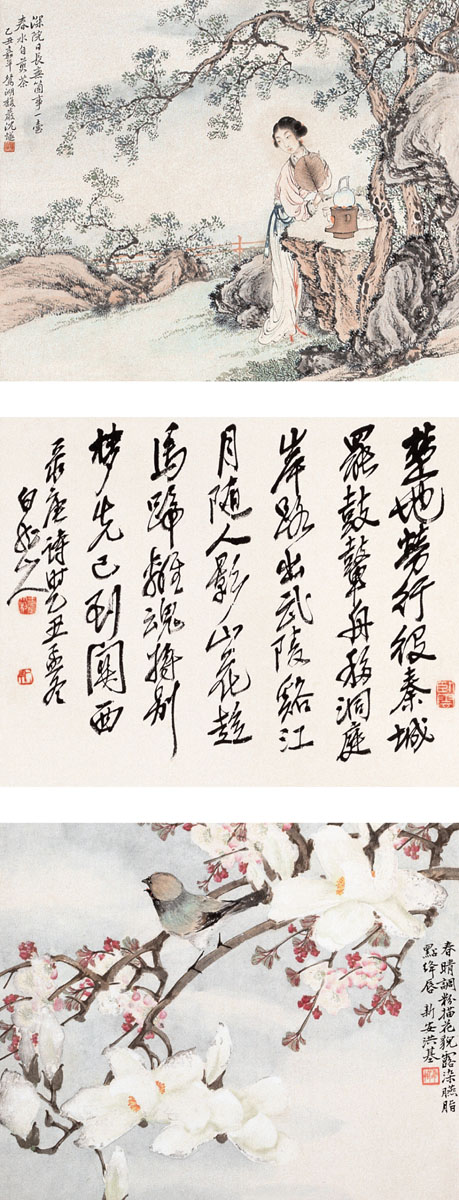 深院日長無箇事一壺
春水自煎茶
乙丑嘉平鴛湖巖沈
楚地勞行役秦城
罷鼓鼙舟移洞庭
岸路出武陵谿江
月隨人影山花趁
馬蹄離魂將別
夢先已到關西
录唐詩时乙丑孟冬
白龍山人
春晴調粉描花貌露染臙脂
點絳唇新安洪基